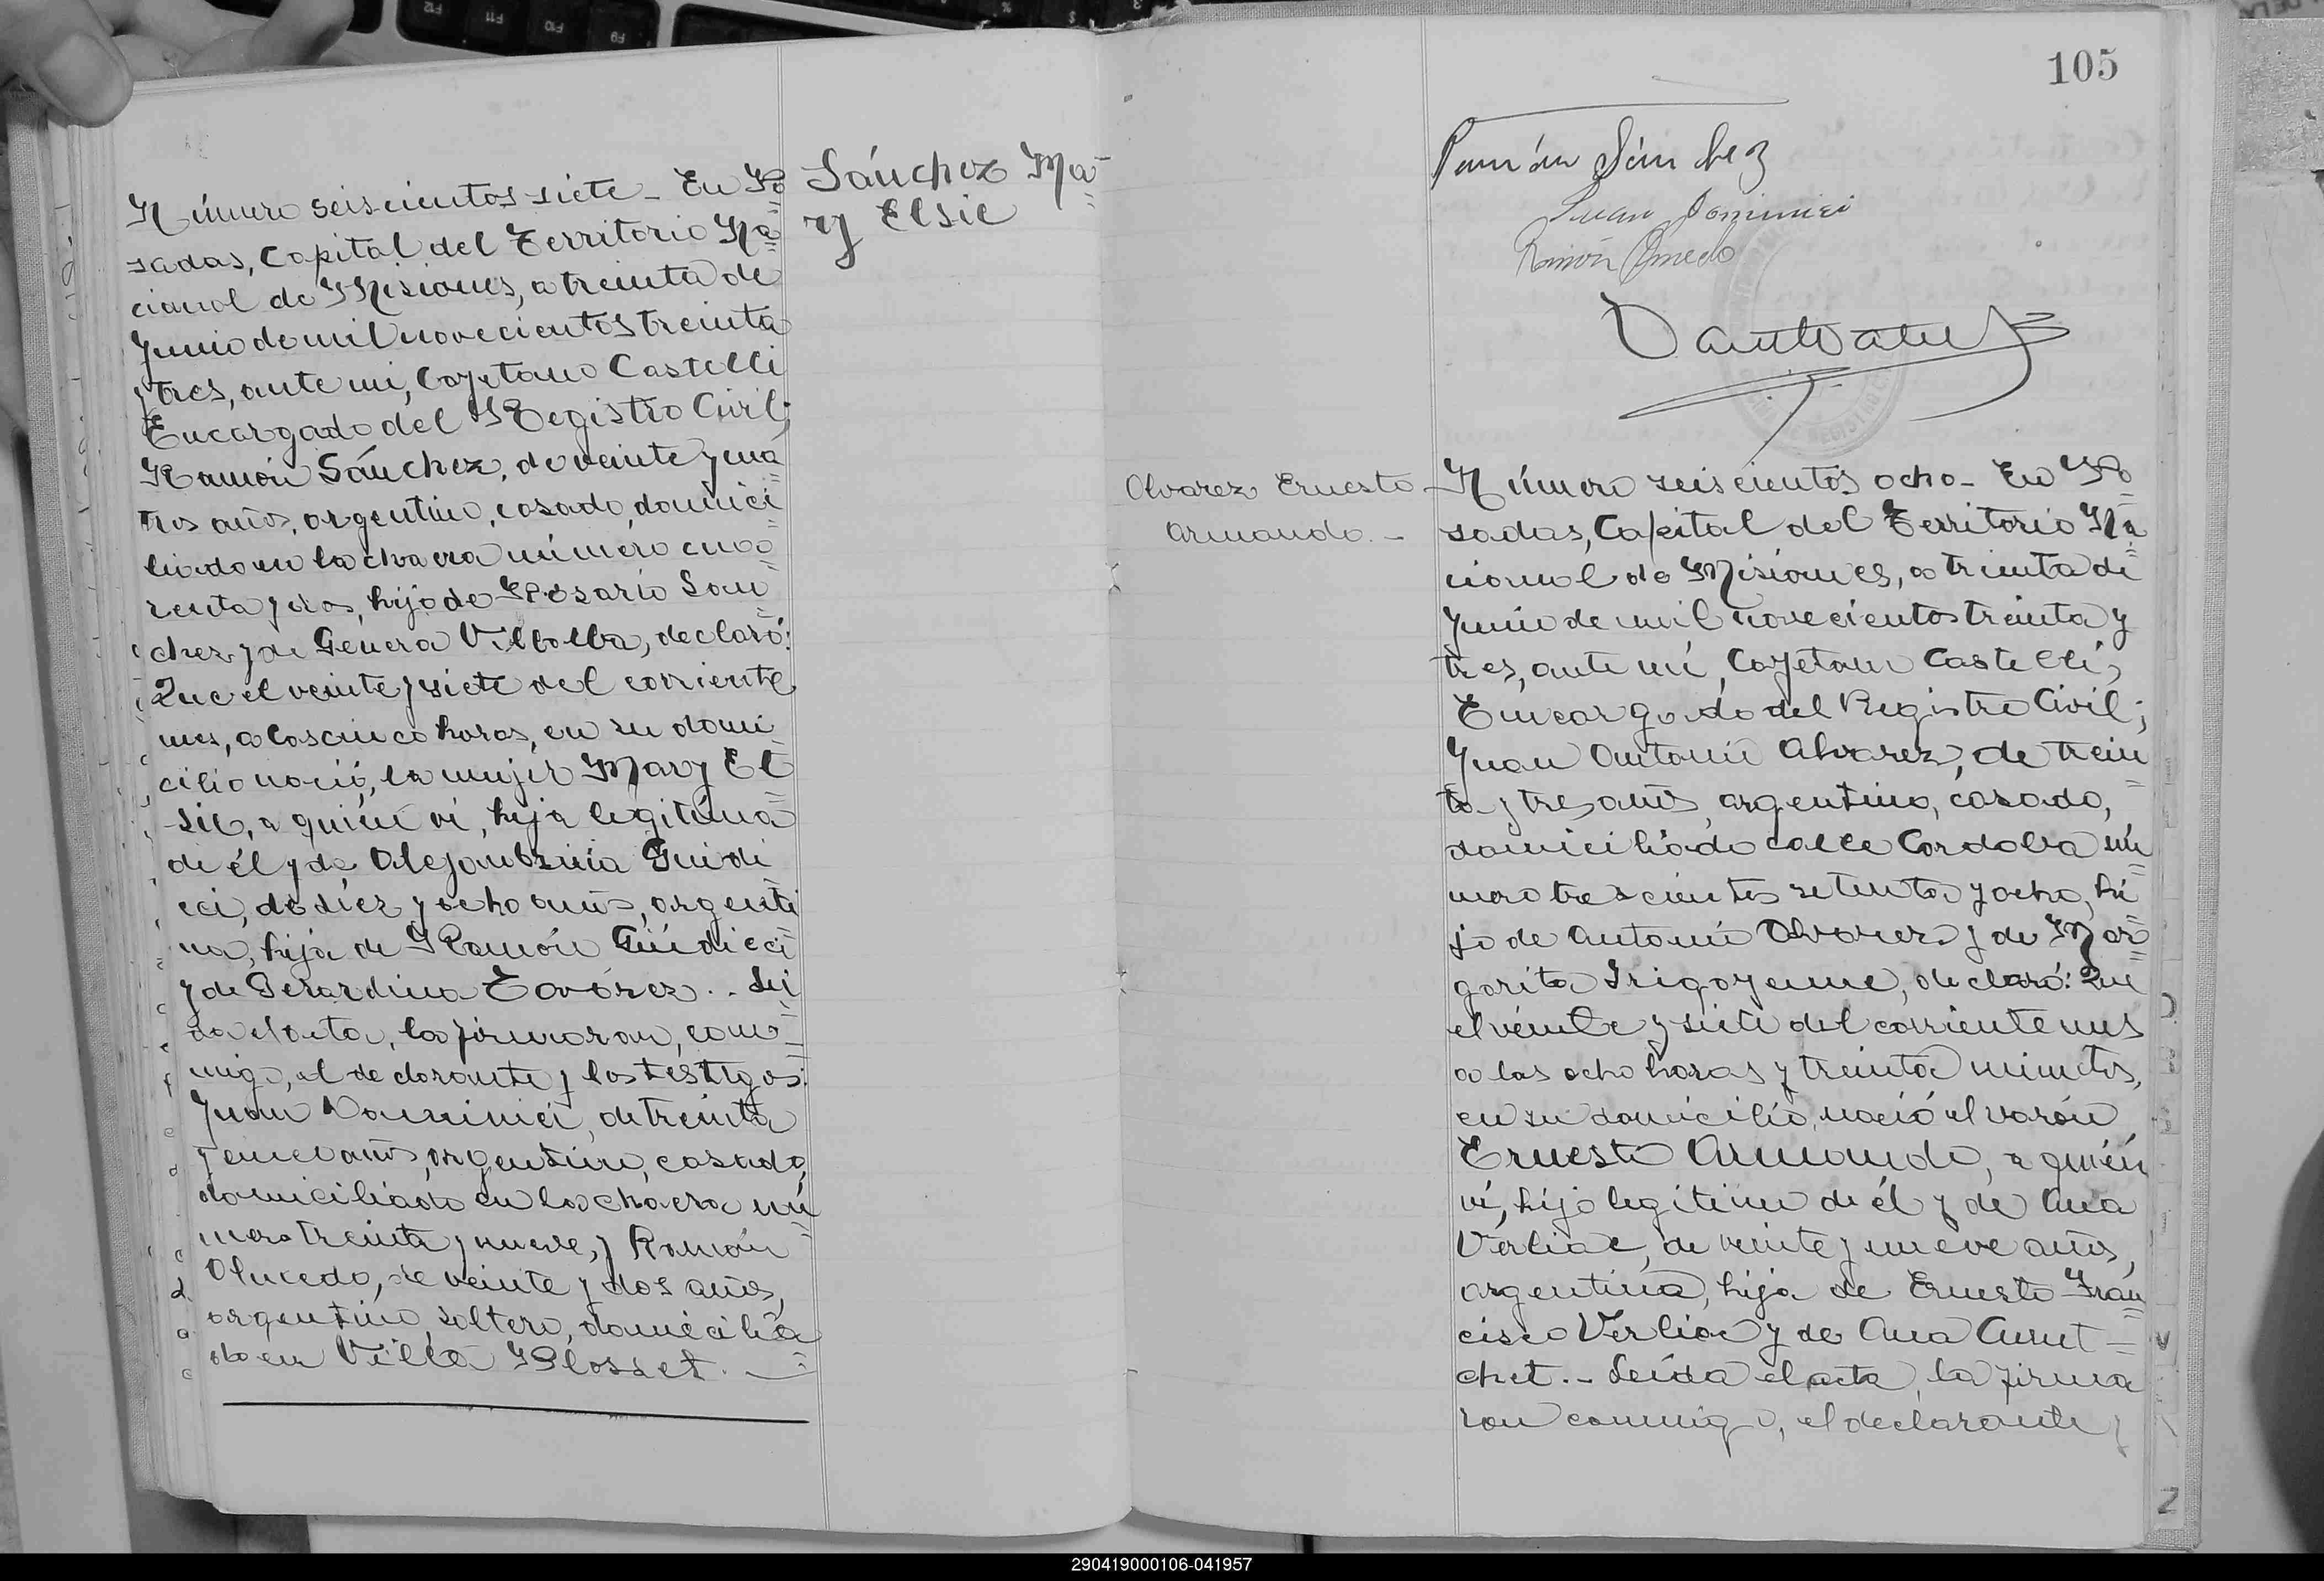 Número seiscientos siete - En Po
sadas, Capital del Territorio Na
cional de Misiones, a treinta de
Junio de mil novecientos treinta
y tres, ante mi, Cayetano Castelli
Encargado del Registro Civil;
Ramón Sánchez, de veinte y cua
tros años, argentino, casado, domici
liado en la chacra número cua
renta y dos, hijo de Rosario San
chez y de Genera Villalba, declaró:
Que el veinte y siete del corriente
mes, a las cinco horas, en su domi
cilio nació, la mujer Mary El
sie, a quién ví, hija legítima
de él y de Alejandrina Guidi
eci, de diez y ocho años, argenti
na, hija de Ramón Guidieci
y de Gerardina Tavárez. - Leí
da el acta, la firmaron, con
migo, el declarante y los testigos:
Juan Dominici, de treinta
y años, argentino, casado,
domiciliado en la chacra nú
mero treinta y nueve, y Ramón
Olmedo, de veinte y dos años,
argentino, soltero, domicilia
do en Villa Blosset. -
Sánchez Ma
ry Elsie
105
Ramón Sánchez
Juan Dominici
Ramón Olmedo
Alvarez Ernesto
Armando. -
Número seiscientos ocho - En Po
sadas, Capital del Territorio Na
cional de Misiones, a treinta de
Junio de mil novecientos treinta y
tres, ante mí, Cayetano Castelli,
Encargado del Registro Civil;
Juan Antonio Alvarez, de trein
ta y tres años, argentino, casado,
domiciliado calle Cordoba nú
mero trescientos setenta y ocho, hi
jo de Antonio Alvarez y de Mar
garita Irigoyenne, declaró: Que
el veinte y siete del corriente mes
a las ocho horas y treinta minutos,
en su domicilio, nació el varón
Ernesto Armando, a quién
ví, hijo legítimo de él y de Ana
Verliac, de veinte y nueve años,
argentina, hija de Ernesto Fran
cisco Verliac y de Ana Curut
chet. - Leída el acta, la firma
ron conmigo, el declarante y
290419000106-041957